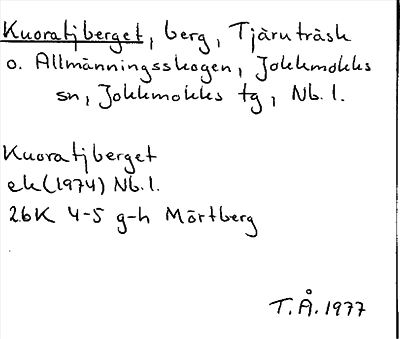 Kuoratjberget, berg, Tjäruträsk
o. Allmänningsskogen, Jokkmokks
sn, Jokkmokks tg, Nb. l.
Kuoratjberget
ek (1974) Nb. l.
26K 4-5 g-h Mörtberg
T.Å. 1977